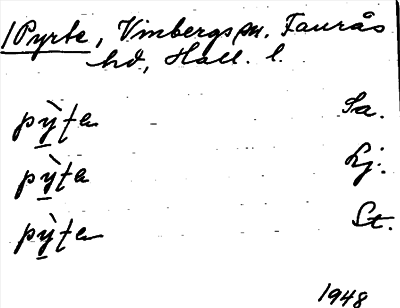 /Pyrte, Vinbergs sn. Faurås
hd, Hall. l.
pỳ̱ta Sa.
pỳ̱ta Lj.
pỳ̱ta St.
1948